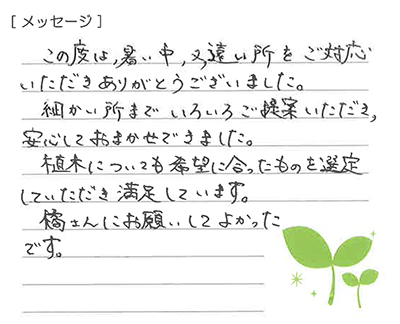 [メッセージ]
この度は,暑い中,又,遠い所をご対応
いただきありがとうございました。
細かい所までいろいろご提案いただき,
安心しておまかせできました。
植木についても希望に合ったものを選定
していただき満足しています。
橘さんにお願いしてよかった
です。